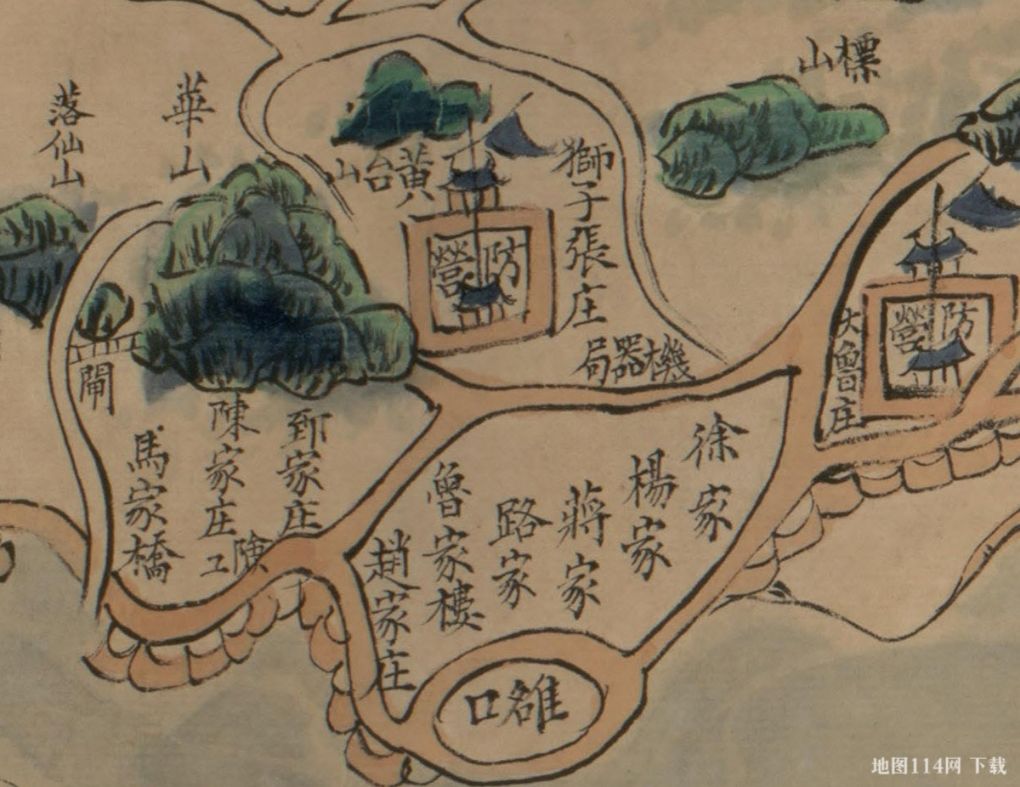 標山
華山
落仙山
黃台山
獅子張庄
防營
防營
大魯庄
機器局
閘
郅家庄
陳家庄
險工
馬家橋
徐家
楊家
蔣家
路家
魯家樓
趙家庄
雒口
地图114网 下载